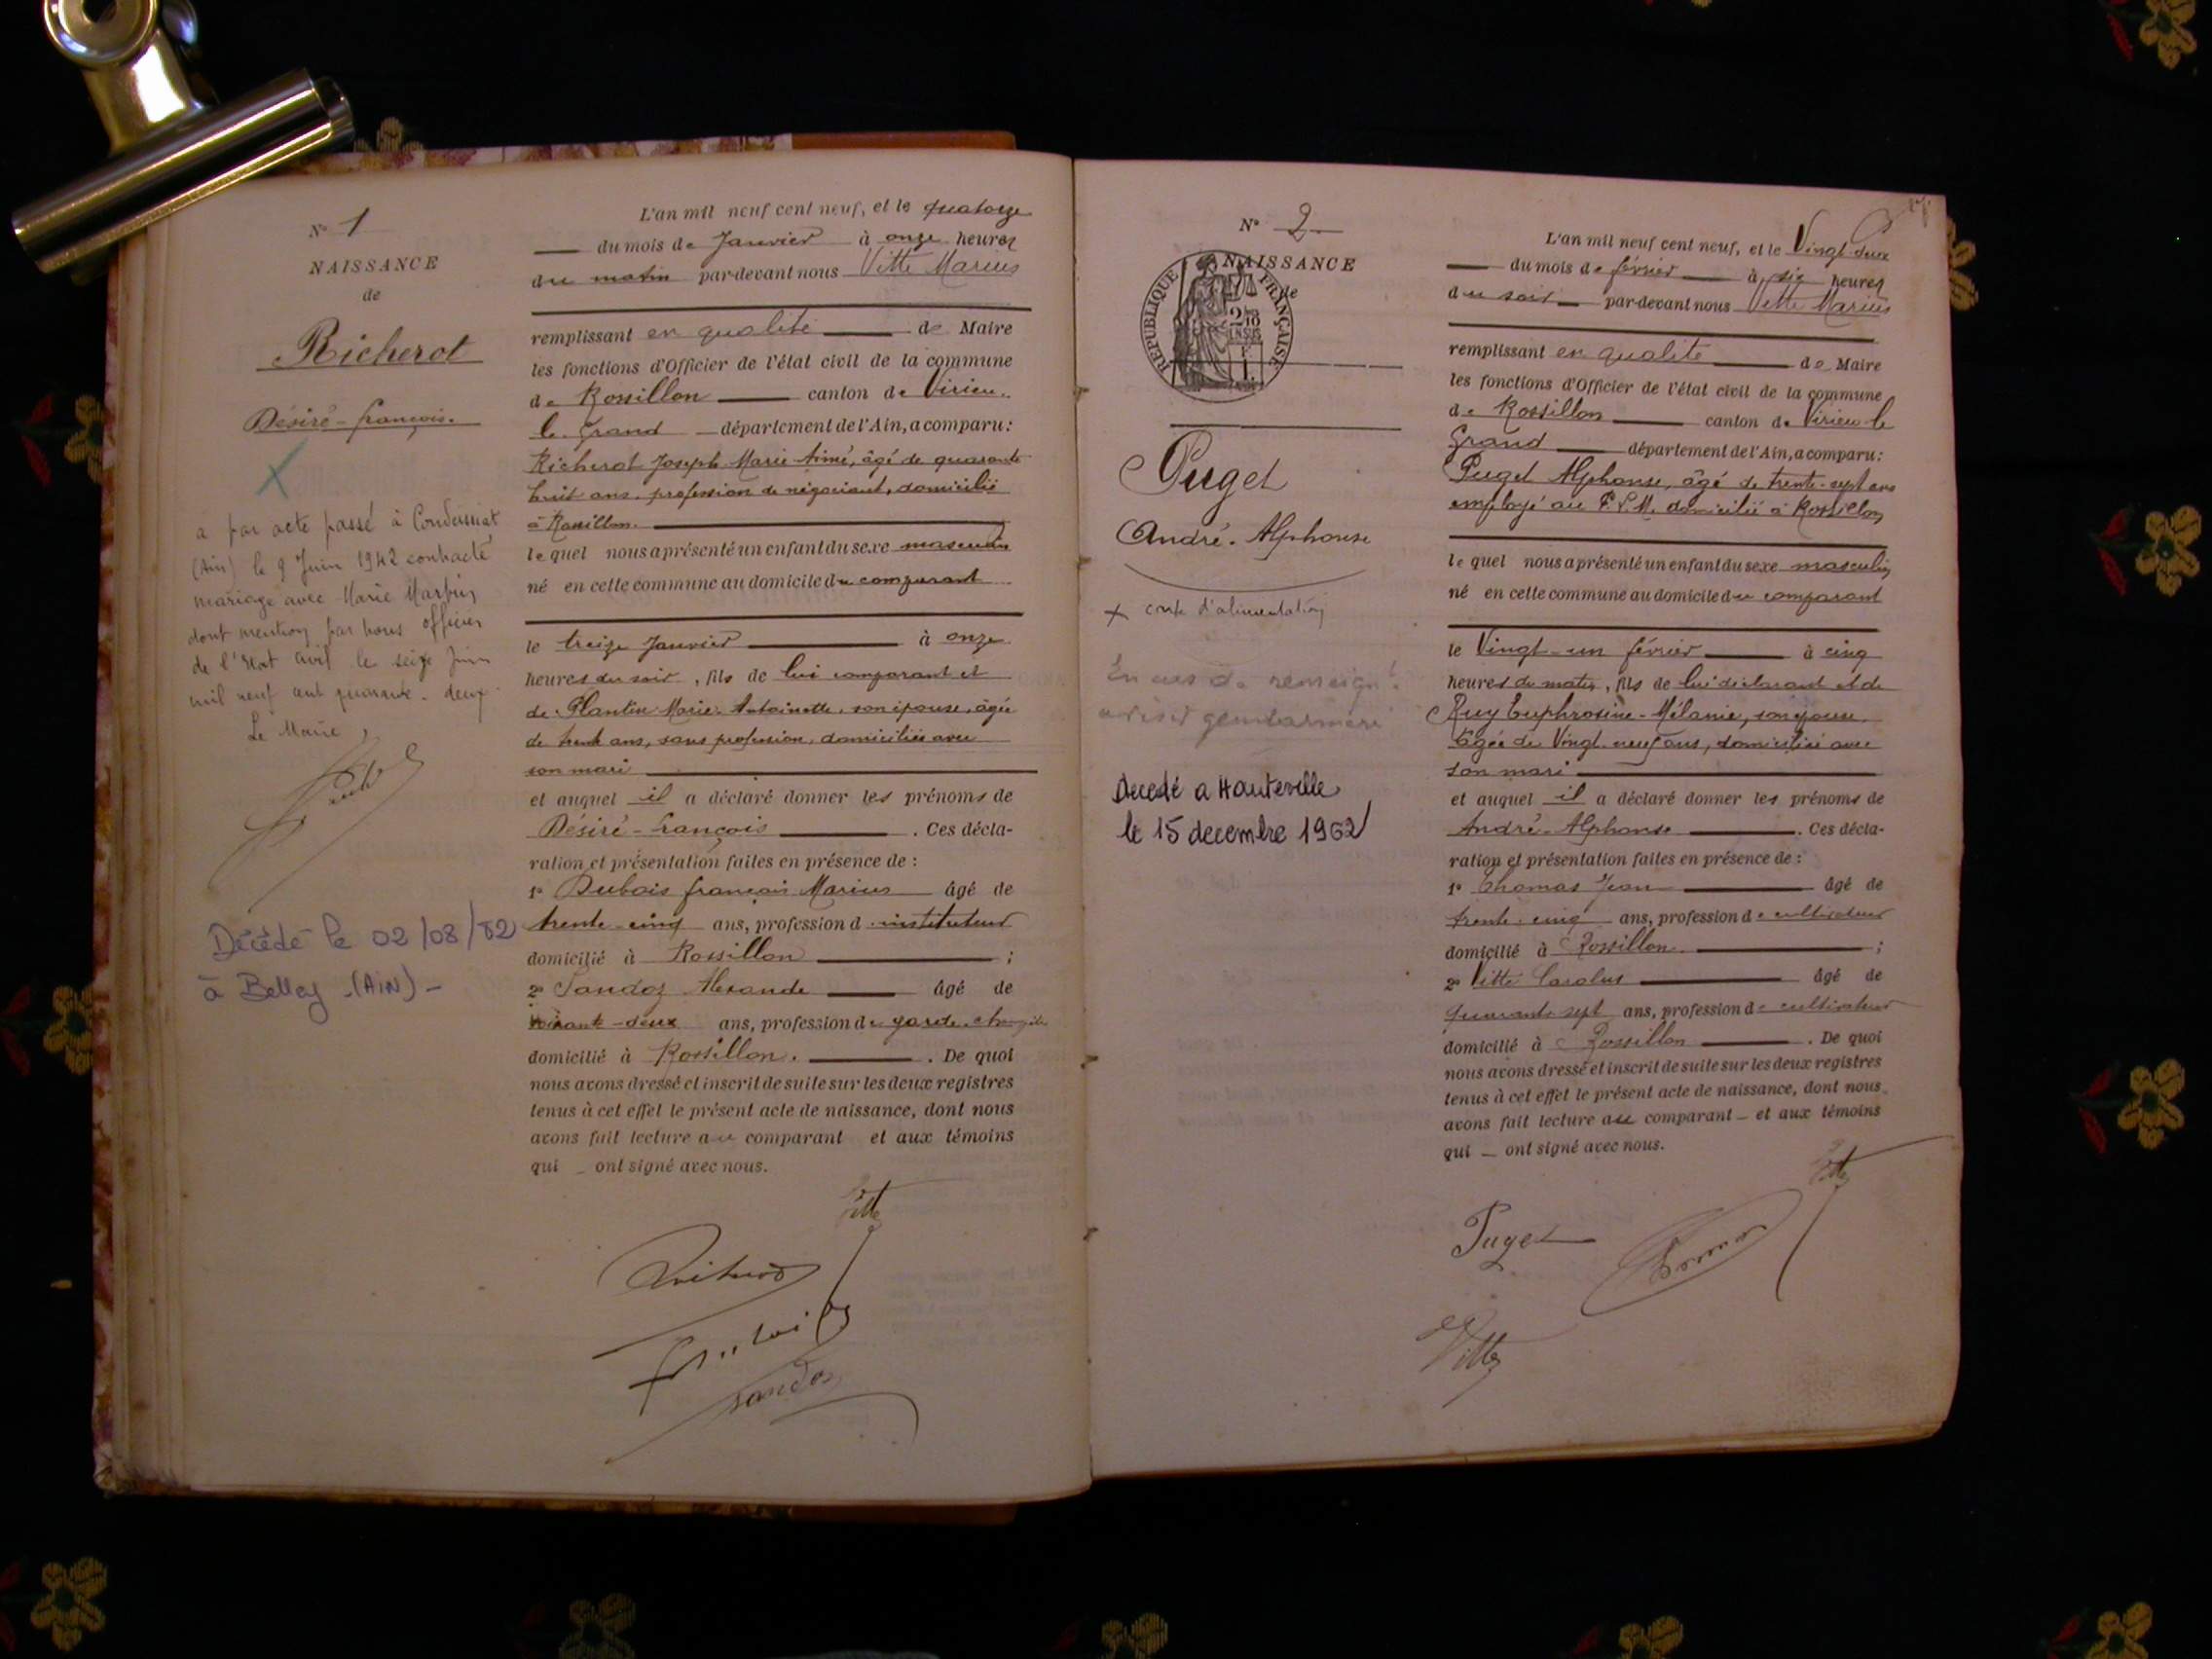 N° 1
NAISSANCE
de
Richerot
Désiré-François.
a par acte passé à Condeissiat
(Ain) le 9 Juin 1942 contracté
mariage avec Marie Marbin
dont mention par nous officier
de l'Etat civil le seize juin
mil neuf cent quarante-deux.
Le Maire,
Décédé le 02/08/82
à Belley (AiN) -
L'an mil neuf cent neuf, et le quatorze
du mois de Janvier à onze heures
du matin par-devant nous Vitte Marius
remplissant en qualité de Maire
les fonctions d'Officier de l'état civil de la commune
de Rossillon canton de Virieu-
le-Grand département de l'Ain, a comparu:
Richerot Joseph Marie Aimé, âgé de quarante-
huit ans, profession de négociant, domicilié
à Rossillon.
lequel nous a présenté un enfant du sexe masculin
né en cette commune au domicile du comparant
le treize Janvier à onze
heures du soir, fils de lui comparant et
de Plantin Marie-Antoinette, son épouse, âgée
de trente ans, sans profession, domiciliée avec
son mari
et auquel il a déclaré donner les prénoms de
Désiré-François. Ces décla-
ration et présentation faites en présence de :
1° Dubois François Marius âgé de
trente-cinq ans, profession d'instituteur
domicilié à Rossillon ;
2° Sandoz Alexandre âgé de
-deux ans, profession de garde-
domicilié à Rossillon. De quoi
nous avons dressé et inscrit de suite sur les deux registres
tenus à cet effet le présent acte de naissance, dont nous
avons fait lecture au comparant et aux témoins
qui ont signé avec nous.
Vitte
Richerot
Dubois
Sandoz
N° 2
NAISSANCE
de
REPUBLIQUE FRANÇAISE
Puget
André-Alphonse
+ carte d'alimentation
En cas de renseignt
aviser gendarmerie
Decedé a Hauteville
le 15 decembre 1962
L'an mil neuf cent neuf, et le Vingt-deux
du mois de février à six heures
du soir par-devant nous Vitte Marius
remplissant en qualité de Maire
les fonctions d'Officier de l'état civil de la commune
de Rossillon canton de Virieu-le
Grand département de l'Ain, a comparu:
Puget Alphonse, âgé de trente-sept ans
employé au P.L.M. domicilié à Rossillon,
lequel nous a présenté un enfant du sexe masculin
né en cette commune au domicile du comparant
le Vingt-un février à cinq
heures du matin, fils de lui déclarant et de
Ruy Euphrosine-Mélanie, son épouse,
âgée de Vingt-neuf ans, domiciliée avec
son mari
et auquel il a déclaré donner les prénoms de
André-Alphonse. Ces décla-
ration et présentation faites en présence de :
1° Thomas Jean âgé de
trente-cinq ans, profession de cultivateur
domicilié à Rossillon ;
2° Vitte Carolus âgé de
quarante-sept ans, profession de cultivateur
domicilié à Rossillon. De quoi
nous avons dressé et inscrit de suite sur les deux registres
tenus à cet effet le présent acte de naissance, dont nous
avons fait lecture au comparant et aux témoins
qui ont signé avec nous.
Vitte
Puget
Thomas
Vitte